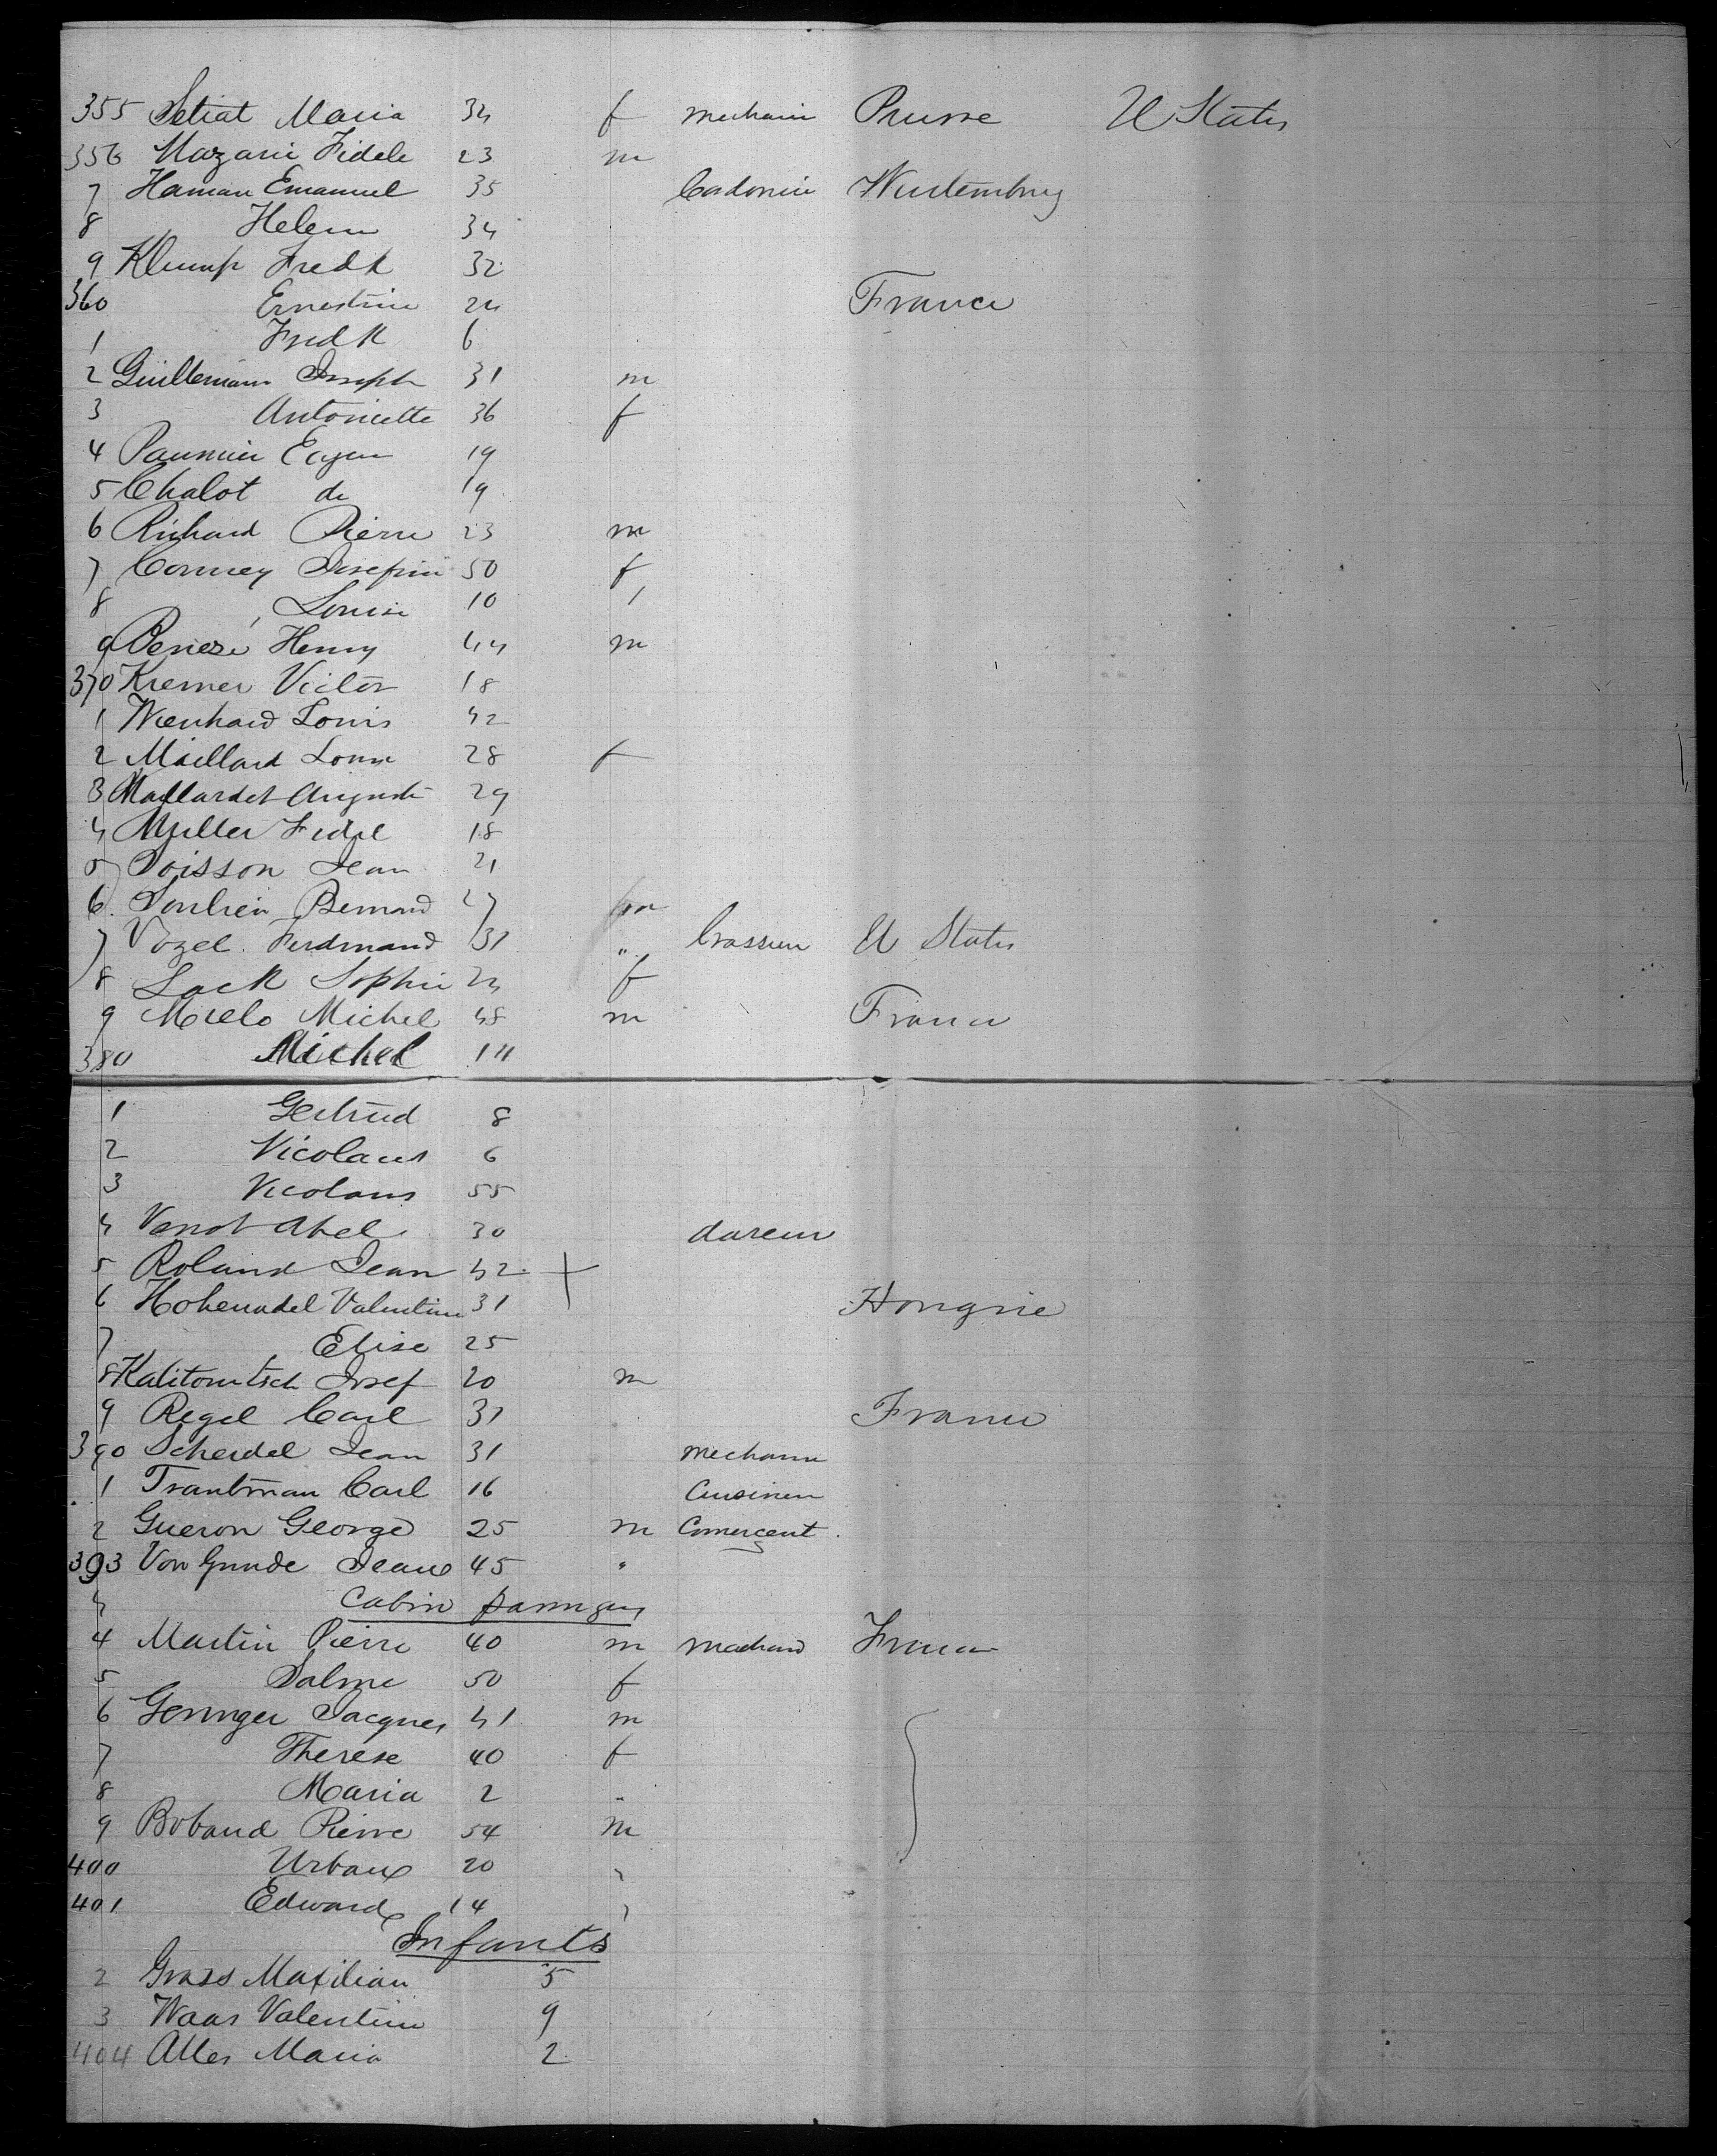 355 Setiat Maria 34 f mechanic Prusse U States
356 Mazarii Fidele 23 m
7 Haman Emanuel 35 Cordonnie Wurtemburg
8 Helene 34
9 Klump Fredk 32
360 Ernestine 24 France
1 Fredk 6
2 Guillemann Joseph 31 m
3 Antoniette 36 f
4 Paumier Eugen 19
5 Chalot de 19
6 Richard Pierre 23 m
7 Conney Josefine 50 f
8 Louise 10
9 Benezi Henry 44 m
370 Kremer Victor 18
1 Wenhard Louis 42
2 Maillard Louise 28 f
3 Maillardet August 29
4 Muller Fidel 18
5 Poisson Jean 21
6 Bernard 27 m
7 Vozel Ferdinand 31 " brasseur U States
8 Lack Sophie 24 f
9 Melo Michel 48 m France
380 Michel 14
1 Gertrud 8
2 Nicolaus 6
3 Nicolaus 55
4 Venot Abel 30
5 Roland Jean 42 +
6 Hohenadel Valentine 31 Hongrie
7 Elise 25
8 Kalitowitsch Josef 20 m
9 Regel Carl 31 France
390 Scherdel Jean 31 mechanic
1 Trautman Carl 16 Cuisinier
2 Gueron George 25 m Comercent
393 Von Gunde Jean 45 "
4 Cabin passengers
4 Martin Pierre 40 m marchand France
5 Salme 50 f
6 Geringer Jacques 41 m
7 Therese 40 f
8 Maria 2 "
9 Bobaud Pierre 54 m
400 Urbain 20 "
401 Edward 14 "
Infants
2 Grass Maxilian 5
3 Waas Valentine 9
404 Alles Maria 2